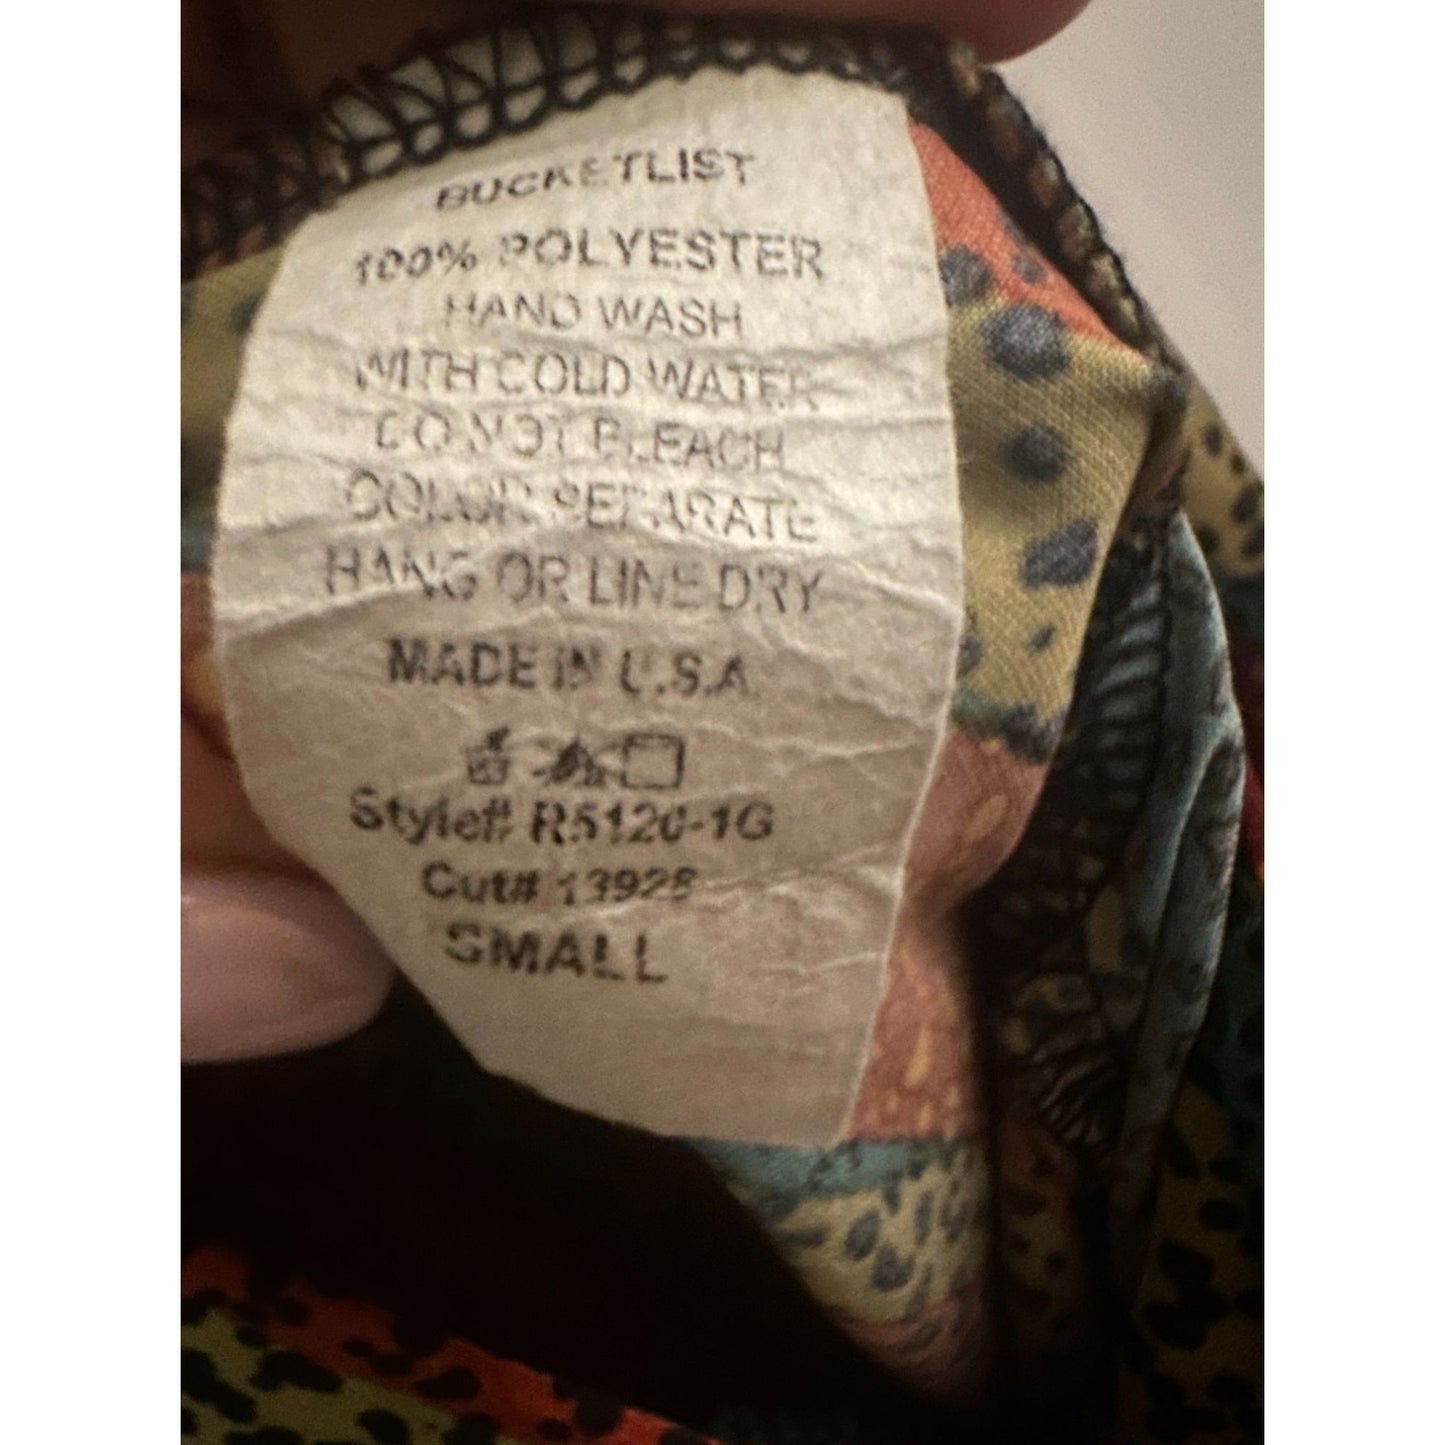 BUCKETLIST
100% POLYESTER
HAND WASH
WITH COLD WATER
DO NOT BLEACH
COLOR SEPARATE
HANG OR LINE DRY
MADE IN U.S.A.
Style# R5120-1G
Cut# 13928
SMALL